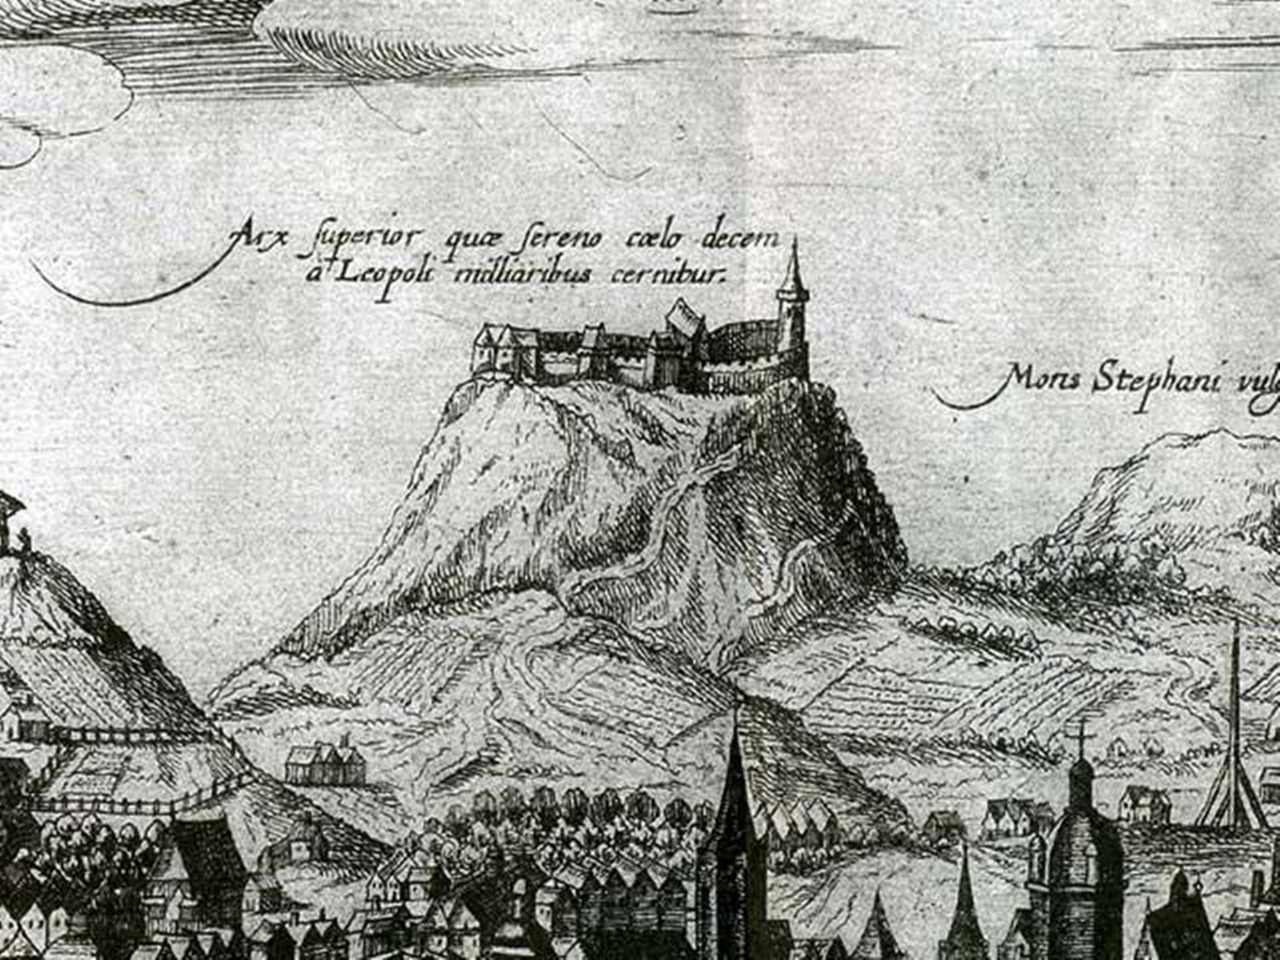 Arx superior quæ sereno cœlo decem
a Leopoli milliaribus cernitur.
Mons Stephani